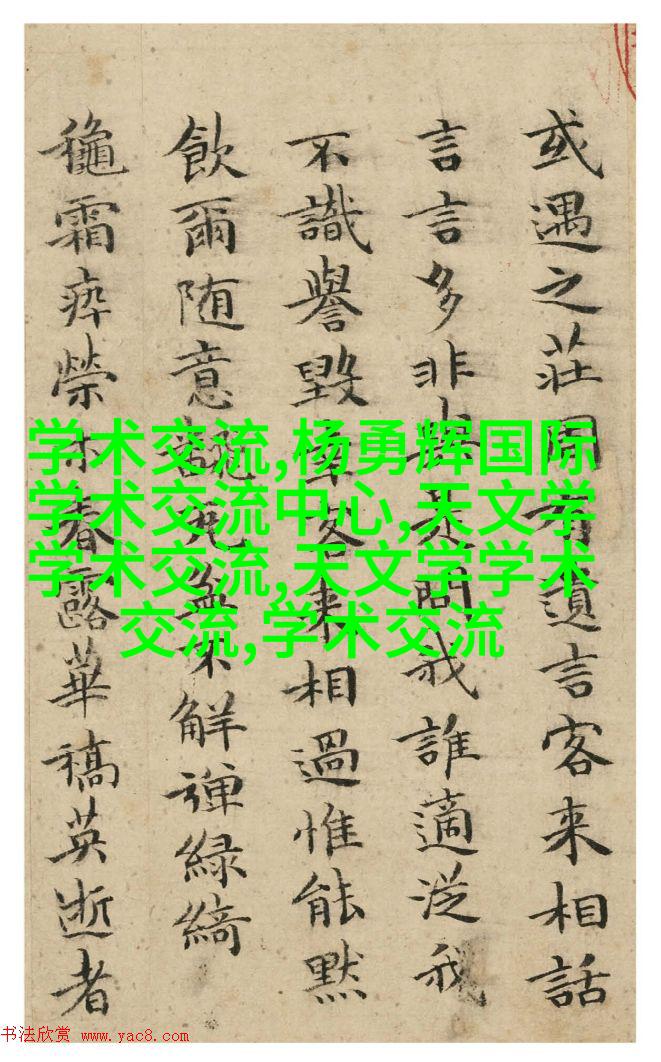 或遇之莊周有言客来相話
言言多非問我誰適從我
不識譽毀客来相過惟能黙
飲爾随意解彈緑綺
龝霜瘁榮春露華稿英逝者
学术交流,杨勇辉国际
学术交流中心,天文学
学术交流,天文学学术
交流,学术交流
书法欣赏 www.yac8.com